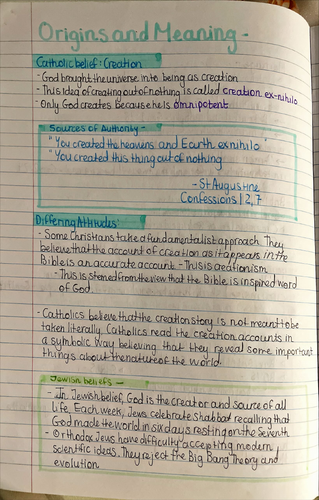 Origins and Meaning -
Catholic belief: Creation
- God brought the universe into being as creation
- This idea of creating out of nothing is called creation ex-nihilo
- Only God creates because he is omnipotent
Sources of Authority -
"You created the heavens and Earth ex nihilo"
"You created this thing out of nothing"
- St Augustine
Confessions 12,7
Differing Attitudes:
- Some Christians take a fundamentalist approach. They
believe that the account of creation as it appears in the
Bible is an accurate account - This is creationism
- This is stemed from the view that the Bible is inspired word
of God.
- Catholics believe that the creation story is not meant to be
taken literally. Catholics read the creation accounts in
a symbolic way believing that they reveal some important
things about the nature of the world
Jewish beliefs -
- In Jewish belief, God is the creator and source of all
life. Each week, Jews celebrate shabbat recalling that
God made the world in six days resting on the seventh
- Orthodox Jews have difficulty accepting modern
scientific ideas. They reject the Big Bang Theory and
evolution